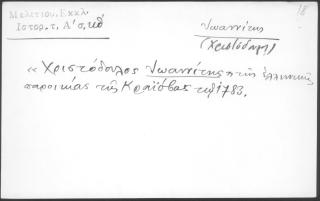 Μελετίου, Εκκλ.
Ιστορ. τ. Α' σ. κθ
Ἰωαννίτης
(Χριστόδουλος)
18
«Χριστόδουλος Ἰωαννίτης» τῆς ἑλληνικῆς
παροικίας τῆς Κραϊόβας τῷ 1783.